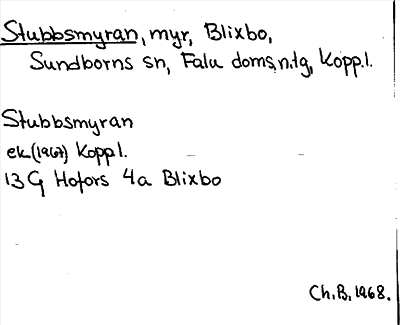 Stubbsmyran, myr, Blixbo,
Sundborns sn, Falu doms.n.tg, Kopp.l.
Stubbsmyran
ek.(1967) Kopp.l.
13 G Hofors 4a Blixbo
Ch.B. 1968.